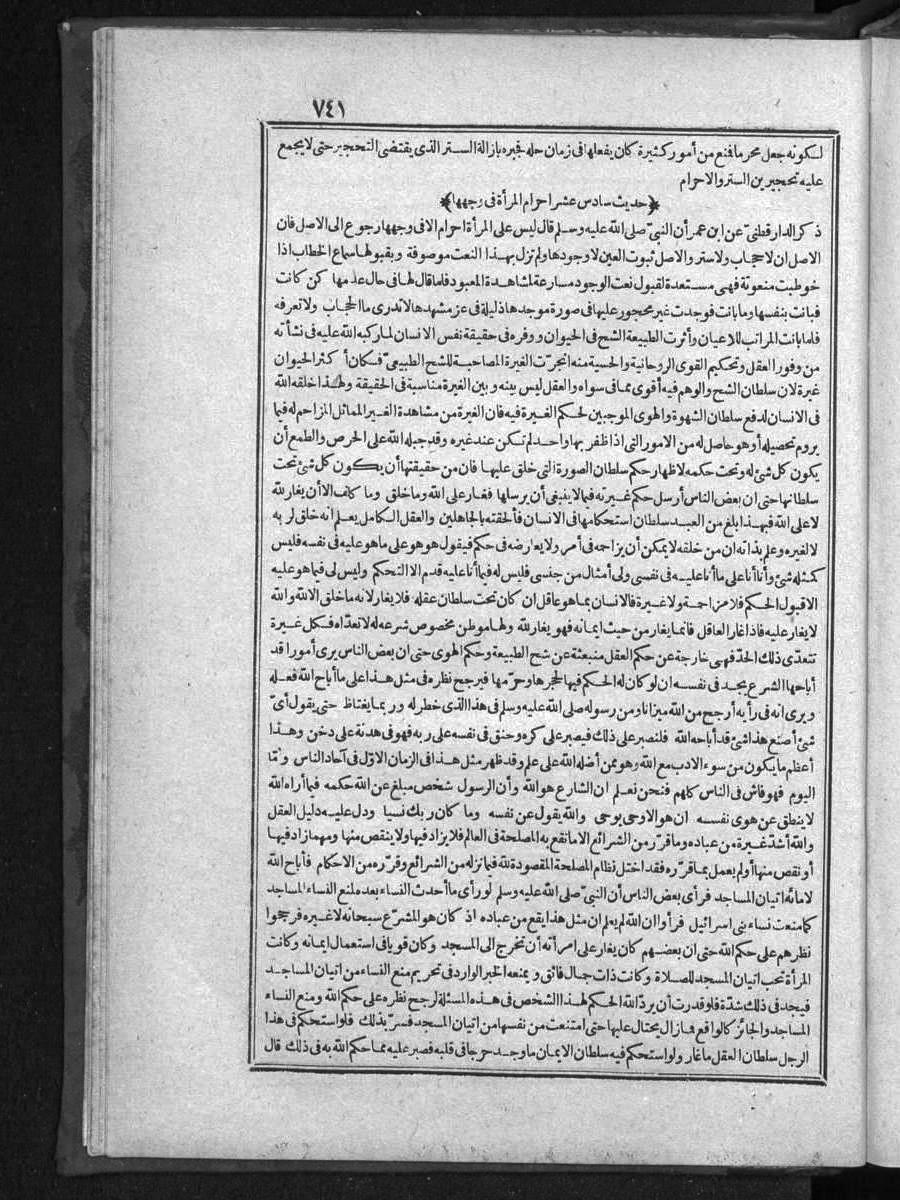 ٧٤١
لكونه جعل محرما فنع من أمور كثيرة كان يفعلها فى زمان حله فجبره بازالة الستر الذى يقتضى التحجير حتى لا يجمع
عليه تحجيرين الستر والاحرام
﴿حديث سادس عشر احرام المرأة فى وجهها﴾
ذكر الدارقطنىّ عن ابن عمر أن النبىّ صلى الله عليه وسلم قال ليس على المرأة احرام الا فى وجهها رجوع الى الاصل فان
الاصل ان لا حجاب ولا ستر والاصل ثبوت العين لا وجودها ولم تزل بهذا النعت موصوفة وبقبولها سماع الخطاب اذا
خوطبت منعوتة فهى مستعدة لقبول نعت الوجود مسارعة لمشاهدة المعبود فلما قال لها فى حال عدمها كن كانت
فبانت بنفسها وما بانت فوجدت غير محجور عليها فى صورة موجدها ذليلة فى عز مشهدها لا تدرى ما الحجاب ولا تعرفه
فلما بانت المراتب للاعيان وأثرت الطبيعة الشح فى الحيوان ووفره فى حقيقة نفس الانسان لما ركبه الله عليه فى نشأته
من وفور العقل وتحكيم القوى الروحانية والحسية منه انجرّت الغيرة المصاحبة للشح الطبيعىّ فكان أكثر الحيوان
غيرة لان سلطان الشح والوهم فيه أقوى مما فى سواه والعقل ليس بينه وبين الغيرة مناسبة فى الحقيقة ولهذا خلقه الله
فى الانسان لدفع سلطان الشهوة والهوى الموجبين لحكم الغيرة فيه فان الغيرة من مشاهدة الغير المماثل المزاحم له فيما
يروم تحصيله أو هو حاصل له من الامور التى اذا ظفر بها واحد لم تكن عند غيره وقد جبله الله على الحرص والطمع أن
يكون كل شئ له وتحت حكمه لاظهار حكم سلطان الصورة التى خلق عليها فان من حقيقتها أن يكون كل شئ تحت
سلطانها حتى ان بعض الناس أرسل حكم غيرته فيما لا ينبغى أن يرسلها فغار على الله وما خلق وما كلف الا أن يغار لله
لا على الله فهذا بلغ من العبد سلطان استحكامها فى الانسان فألحقته بالجاهلين والعقل الكامل يعلم انه خلق لربه
لا لغيره وعلم بذاته ان من خلقه لا يمكن أن يزاحمه فى أمر ولا يعارضه فى حكم فيقول هو هو على ما هو عليه فى نفسه فليس
كمثله شئ وأنا أنا على ما أنا عليه فى نفسى ولى أمثال من جنسى فليس له فيما أنا عليه قدم الا التحكم وليس لى فيما هو عليه
الا قبول الحكم فلا مزاحمة ولا غيرة فالانسان بما هو عاقل ان كان تحت سلطان عقله فلا يغار لانه ما خلق الا لله والله
لا يغار عليه فاذا غار العاقل فانما يغار من حيث ايمانه فهو يغار لله ولها موطن مخصوص شرعه له لا تعدّاه فكل غيرة
تتعدّى ذلك الحدّ فهى خارجة عن حكم العقل منبعثة عن شح الطبيعة وحكم الهوى حتى ان بعض الناس يرى أمورا قد
أباحها الشرع يجد فى نفسه ان لو كان له الحكم فيها لحجرها وحرّمها فيرجح نظره فى مثل هذا على ما أباح الله فعله
ويرى انه فى رأيه أرجح من الله ميزانا ومن رسوله صلى الله عليه وسلم فى هذا الذى خطر له وربما يغتاظ حتى يقول أىّ
شئ أصنع هذا شئ قد أباحه الله فلنصبر على ذلك فيصبر على كره وحنق فى نفسه على ربه فهو فى هدنة على دخن وهذا
أعظم ما يكون من سوء الادب مع الله وهو ممن أضله الله على علم وقد ظهر مثل هذا فى الزمان الاوّل فى آحاد الناس وأمّا
اليوم فهو فاش فى الناس كلهم فنحن نعلم ان الشارع هو الله وأن الرسول شخص مبلغ عن الله حكمه فيما أراه الله
لا ينطق عن هوى نفسه ان هو الا وحى يوحى والله يقول عن نفسه وما كان ربك نسيا ودل عليه دليل العقل
والله أشدّ غيرة من عباده وما قرّر من الشرائع الا ما تقع به المصلحة فى العالم فلا يزاد فيها ولا ينقص منها ومهما زاد فيها
أو نقص منها أو لم يعمل بما قرّره فقد اختل نظام المصلحة المقصودة لله فيما نزله من الشرائع وقرّره من الاحكام فأباح الله
لامائه اتيان المساجد فرأى بعض الناس أن النبىّ صلى الله عليه وسلم لو رأى ما أحدث النساء بعده لمنع النساء المساجد
كما منعت نساء بنى اسرائيل فرأوا ان الله لم يعلم ان مثل هذا يقع من عباده اذ كان هو المشرّع سبحانه لا غيره فرجحوا
نظرهم على حكم الله حتى ان بعضهم كان يغار على امرأته أن تخرج الى المسجد وكان قويا فى استعمال ايمانه وكانت
المرأة تحب اتيان المسجد للصلاة وكانت ذات جمال فائق ويمنعه الخبر الوارد فى تحريم منع النساء من اتيان المساجد
فيجد فى ذلك شدّة فلو قدرت أن يردّ الله الحكم لهذا الشخص فى هذه المسئلة لرجح نظره على حكم الله ومنع النساء
المساجد والجائز كالواقع فما زال يحتال عليها حتى امتنعت من نفسها من اتيان المسجد فسرّ بذلك فلو استحكم فى هذا
الرجل سلطان العقل ما غار ولو استحكم فيه سلطان الايمان ما وجد حرجا فى قلبه فصبر عليه مما حكم الله به فى ذلك قال